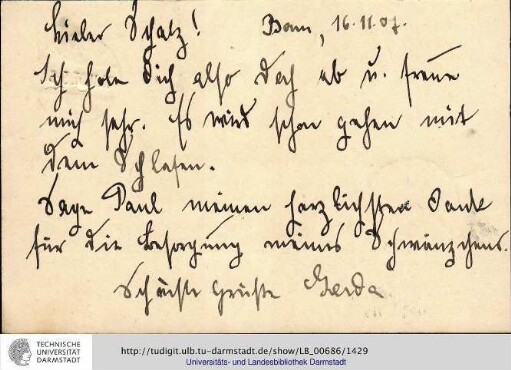 Lieber Schatz! Bonn, 16.11.07.
Ich hole Dich also doch ab u. freue
mich sehr. Es wird schon gehen mit
dem Schlafen.
Sage Paul meinen herzlichsten Dank
für die Besorgung meines Schwänzchens.
Schönste Grüße Gerda
TECHNISCHE
UNIVERSITÄT
DARMSTADT
http://tudigit.ulb.tu-darmstadt.de/show/LB_00686/1429
Universitäts- und Landesbibliothek Darmstadt